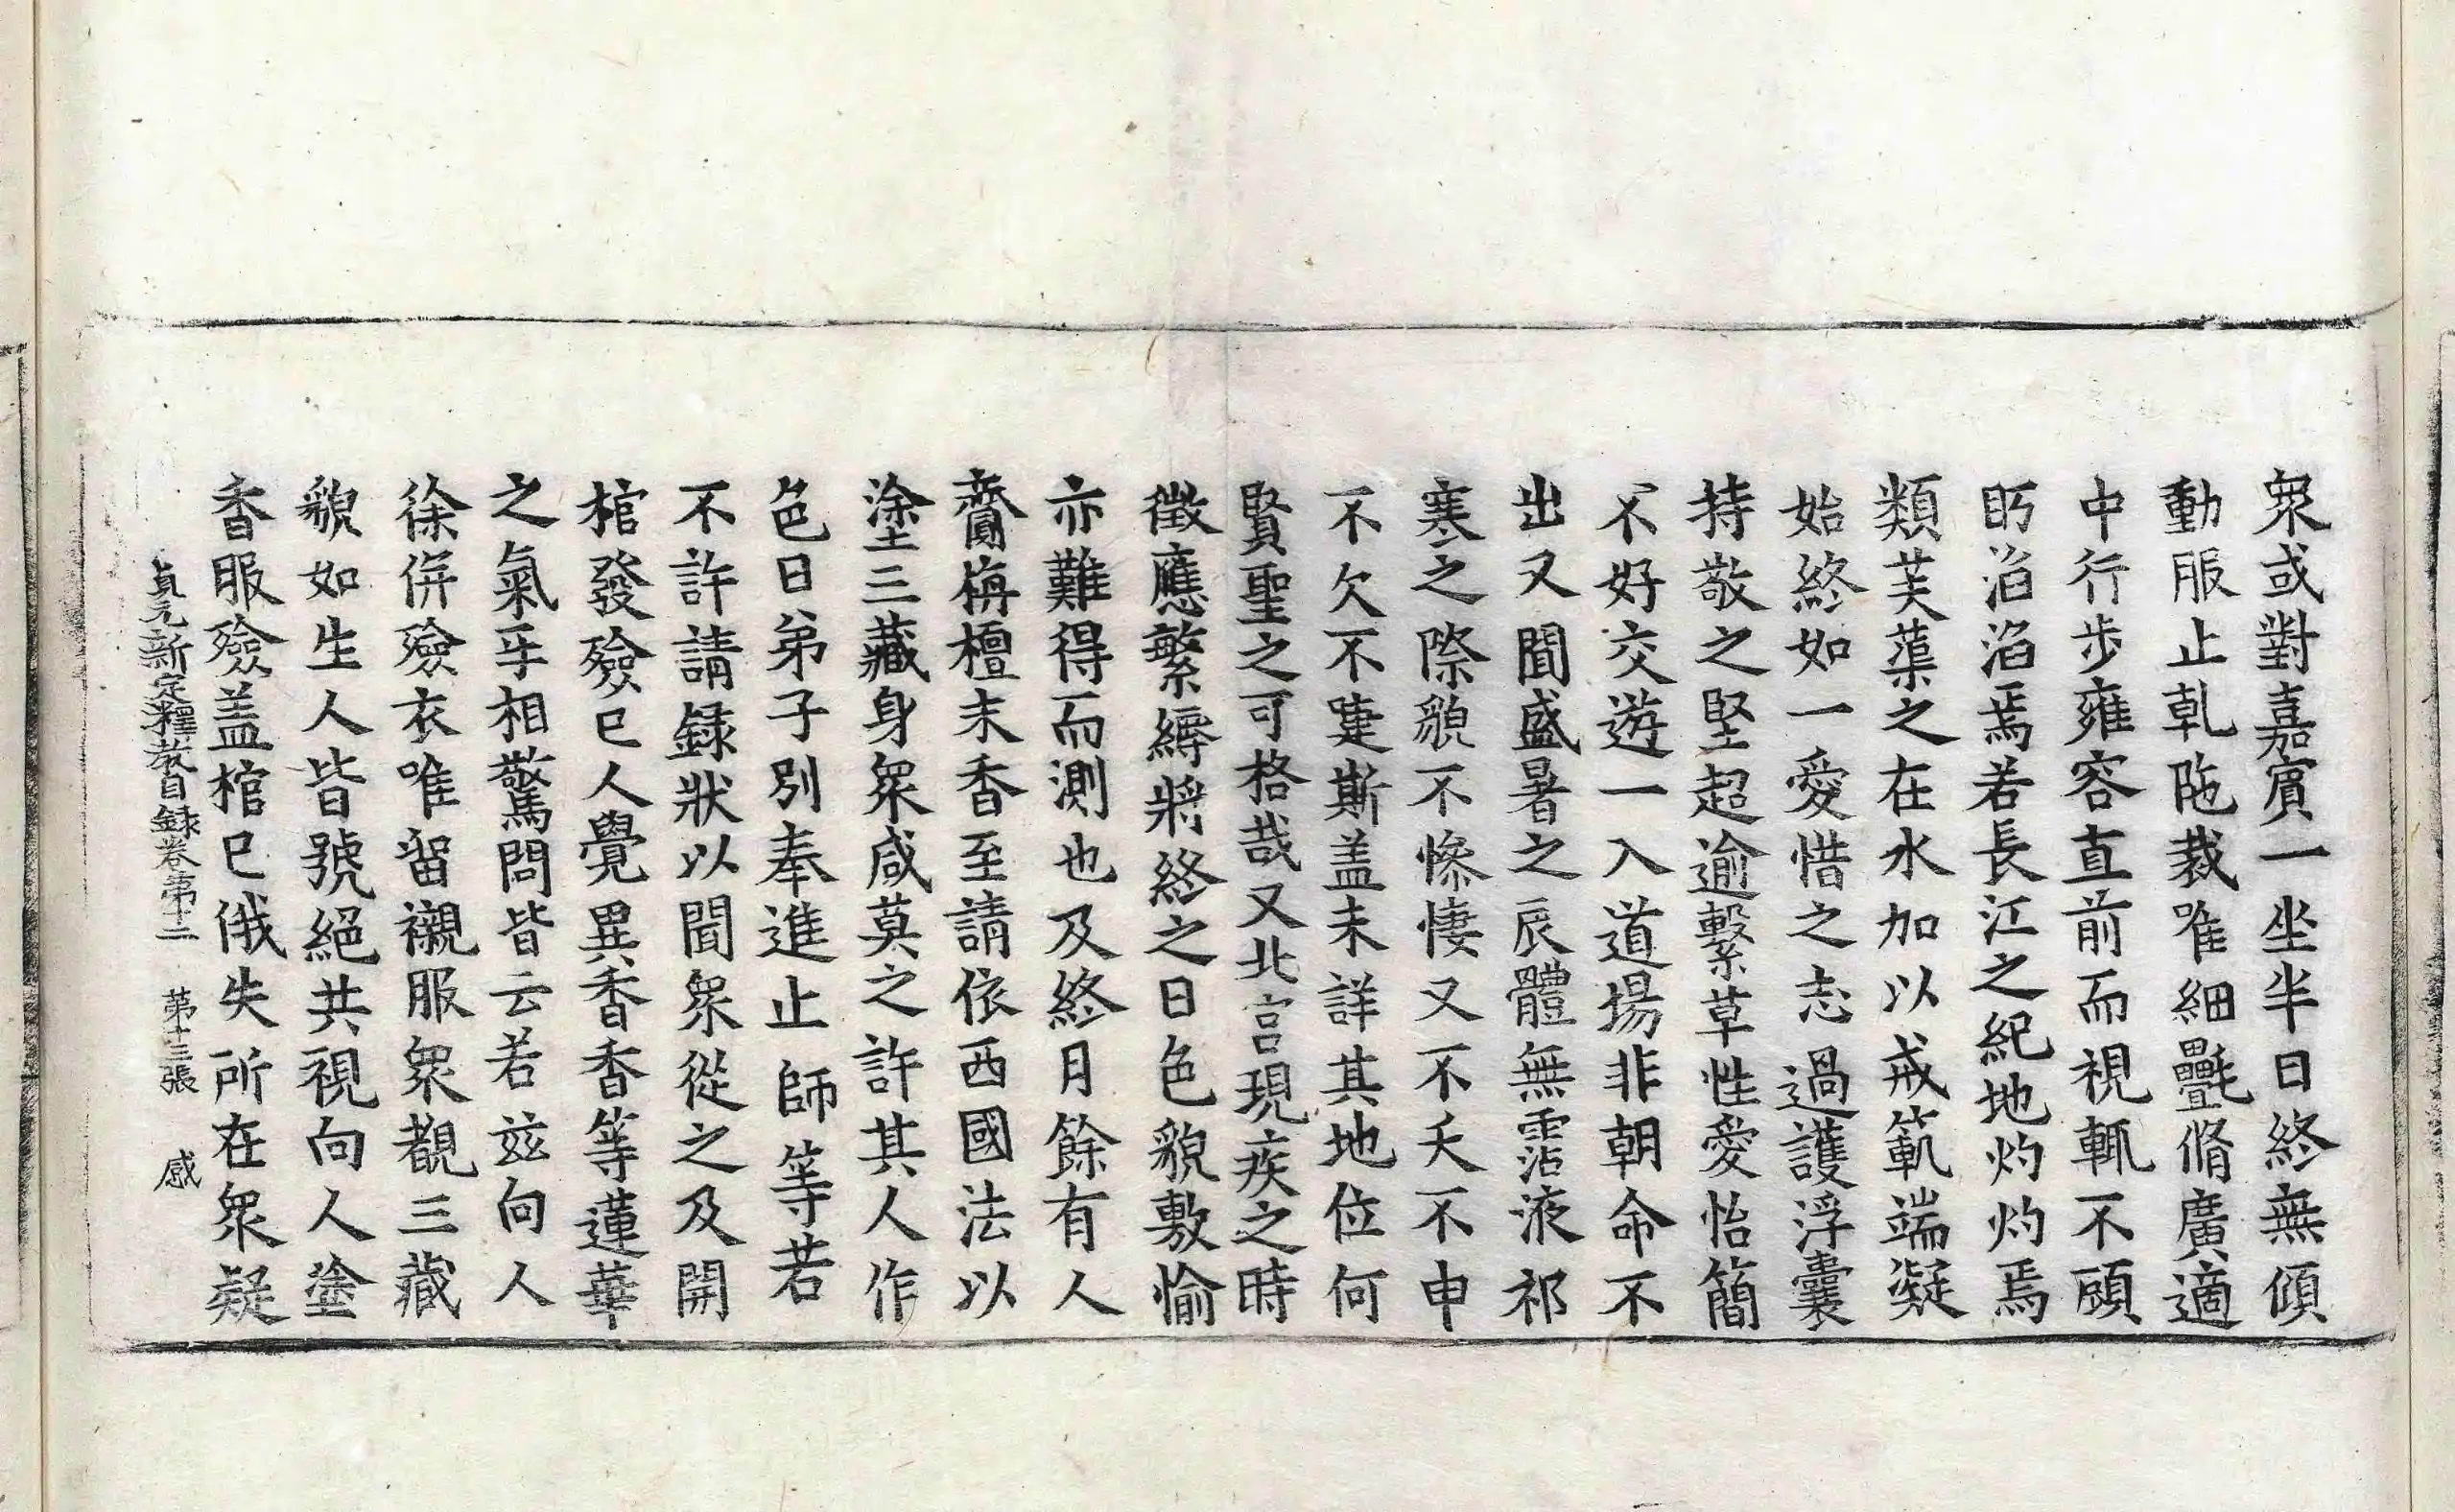 衆或對嘉賓一坐半日終無傾
動服止乹陁裁唯細氎脩廣適
中行步雍容直前而視輒不顧
眄滔滔焉若長江之紀地灼灼焉
類芙蕖之在水加以戒範端凝
始終如一愛惜之志過護浮囊
持敬之堅超逾繫草性愛怡簡
不好交遊一入道場非朝命不
出又聞盛暑之辰體無霑液祁
寒之際貌不慘悽又不夭不申
不欠不疌斯盖未詳其地位何
賢聖之可格哉又北宮現疾之時
徵應繁縟將終之日色貌敷愉
亦難得而測也及終月餘有人
齎栴檀末香至請依西國法以
塗三藏身衆咸莫之許其人作
色曰弟子別奉進止師等若
不許請録狀以聞衆從之及開
棺發殮已人覺異香香等蓮華
之氣㸦相驚問皆云若茲向人
徐併殮衣唯留襯服衆覩三藏
貌如生人皆號絕共視向人塗
香服殮盖棺已俄失所在衆疑
貞元新定釋教目録卷第十二 第十三張 感